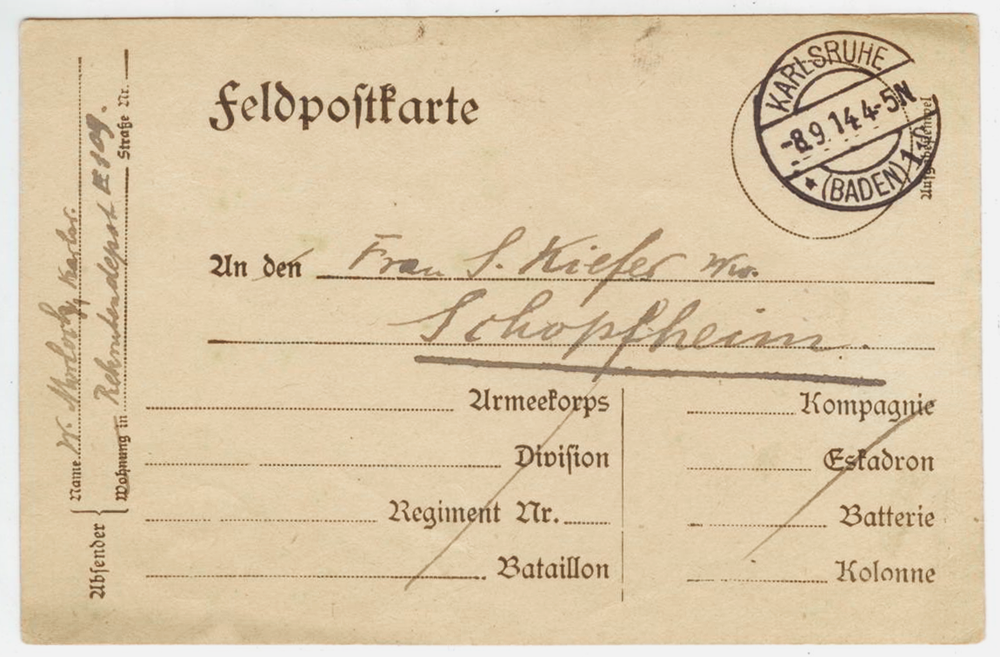 Feldpostkarte
KARLSRUHE
-8.9.14.4-5N
* (BADEN) 1
An den Frau S. Kiefer Ww.
Schopfheim.
Armeekorps
Division
Regiment Nr.
Bataillon
Kompagnie
Eskadron
Batterie
Kolonne
Absender
Name W. Karlsr.
Wohnung in Rekrutendepot 109.
Straße Nr.